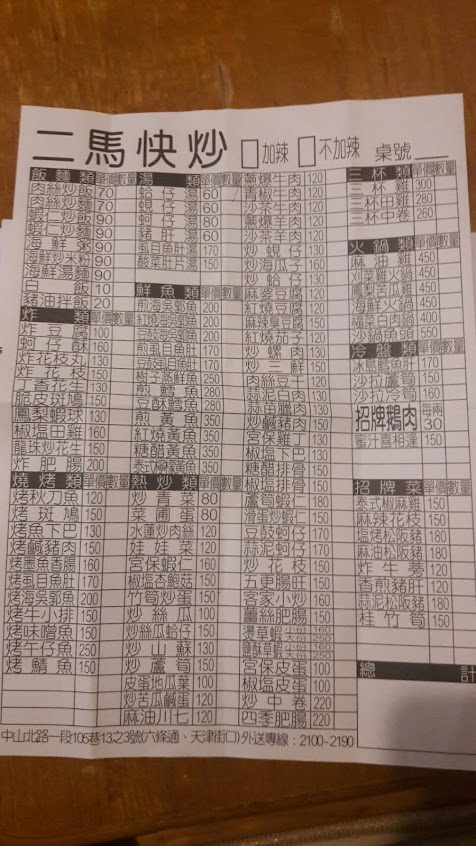 二馬快炒 加辣 不加辣 桌號
飯麵類 單價 數量
肉絲炒飯 70
肉絲炒麵 70
蝦仁炒飯 90
蝦仁炒麵 90
海鮮粥 90
海鮮炒米粉 90
海鮮湯麵 90
白飯 10
豬油拌飯 20
炸類 單價 數量
炸豆腐 100
蚵仔酥 160
炸花枝丸 130
炸花枝 150
丁香花生 130
脆皮斑鳩 150
鳳梨蝦球 130
椒塩田雞 160
龍珠炒花生 150
炸肥腸 200
燒烤類 單價 數量
烤秋刀魚 120
烤斑鳩 150
烤魚下巴 130
烤鹹豬肉 150
烤墨魚香腸 160
烤虱目魚肚 170
烤海吳郭魚 200
烤牛小排 150
烤味噌魚 150
烤午仔魚 250
烤鯖魚 150
湯類 單價 數量
蛤仔湯 60
蜆仔湯 60
蚵仔湯 80
豬肝湯 60
虱目魚肚湯 170
酸菜肚片湯 150
鮮魚類 單價 數量
煎海吳郭魚 200
紅燒海吳郭魚 200
豆豉海吳郭魚 200
煎虱目魚肚 170
豆豉虱目魚肚 170
樹子蒸鮮魚 250
煎鱈魚 250
豆酥鱈魚 280
煎黃魚 350
紅燒黃魚 350
糖醋黃魚 350
泰式檸檬魚 350
熱炒類 單價 數量
炒青菜 80
菜脯蛋 80
水蓮炒肉絲 120
娃娃菜 120
宮保蝦仁 160
椒塩杏鮑菇 150
竹筍炒蛋 150
炒絲瓜 100
炒絲瓜蛤仔 150
炒山蘇 130
炒蘆筍 150
皮蛋地瓜葉 100
炒苦瓜鹹蛋 120
麻油川七 120
蔥爆牛肉 120
青椒牛肉 120
沙茶牛肉 120
蔥爆羊肉 120
沙茶羊肉 120
炒蜆仔 130
炒海瓜子 160
炒蛤仔 130
麻婆豆腐 120
紅燒豆腐 120
麻辣臭豆腐 150
紅燒茄子 120
炒螺肉 130
炒三鮮 150
肉絲豆干 120
炒豆干 120
蒜苗臘肉 130
炒鹹豬肉 150
宮保雞丁 130
椒塩下巴 130
糖醋排骨 150
椒塩排骨 150
蘆筍蝦仁 180
滑蛋炒蝦仁 150
豆豉蚵仔 170
蒜泥蚵仔 170
炒花枝 150
五更腸旺 150
客家小炒 160
薑絲肥腸 150
燙草蝦 大份 260
鹽酥草蝦 大份 260
宮保皮蛋 100
椒塩皮蛋 100
炒中卷 220
四季肥腸 220
三杯類 單價 數量
三杯雞 300
三杯田雞 280
三杯中卷 260
火鍋類 單價 數量
麻油雞 450
刈菜雞火鍋 450
鳳梨苦瓜雞 450
海鮮火鍋 450
酸菜白肉鍋 450
沙鍋魚頭 550
冷盤類 單價 數量
沙拉蘆筍 150
沙拉冷筍 160
招牌鵝肉 每兩 30
蜜汁喜相逢 150
招牌菜 單價 數量
泰式椒麻雞 150
麻辣花枝 150
塩烤松阪豬 180
麻油松阪豬 180
炸牛蒡 120
香煎豬肝 120
蒜泥松阪豬 180
桂竹筍 150
總計
中山北路一段105巷13之3號(六條通、天津街口) 外送專線:2100-2190